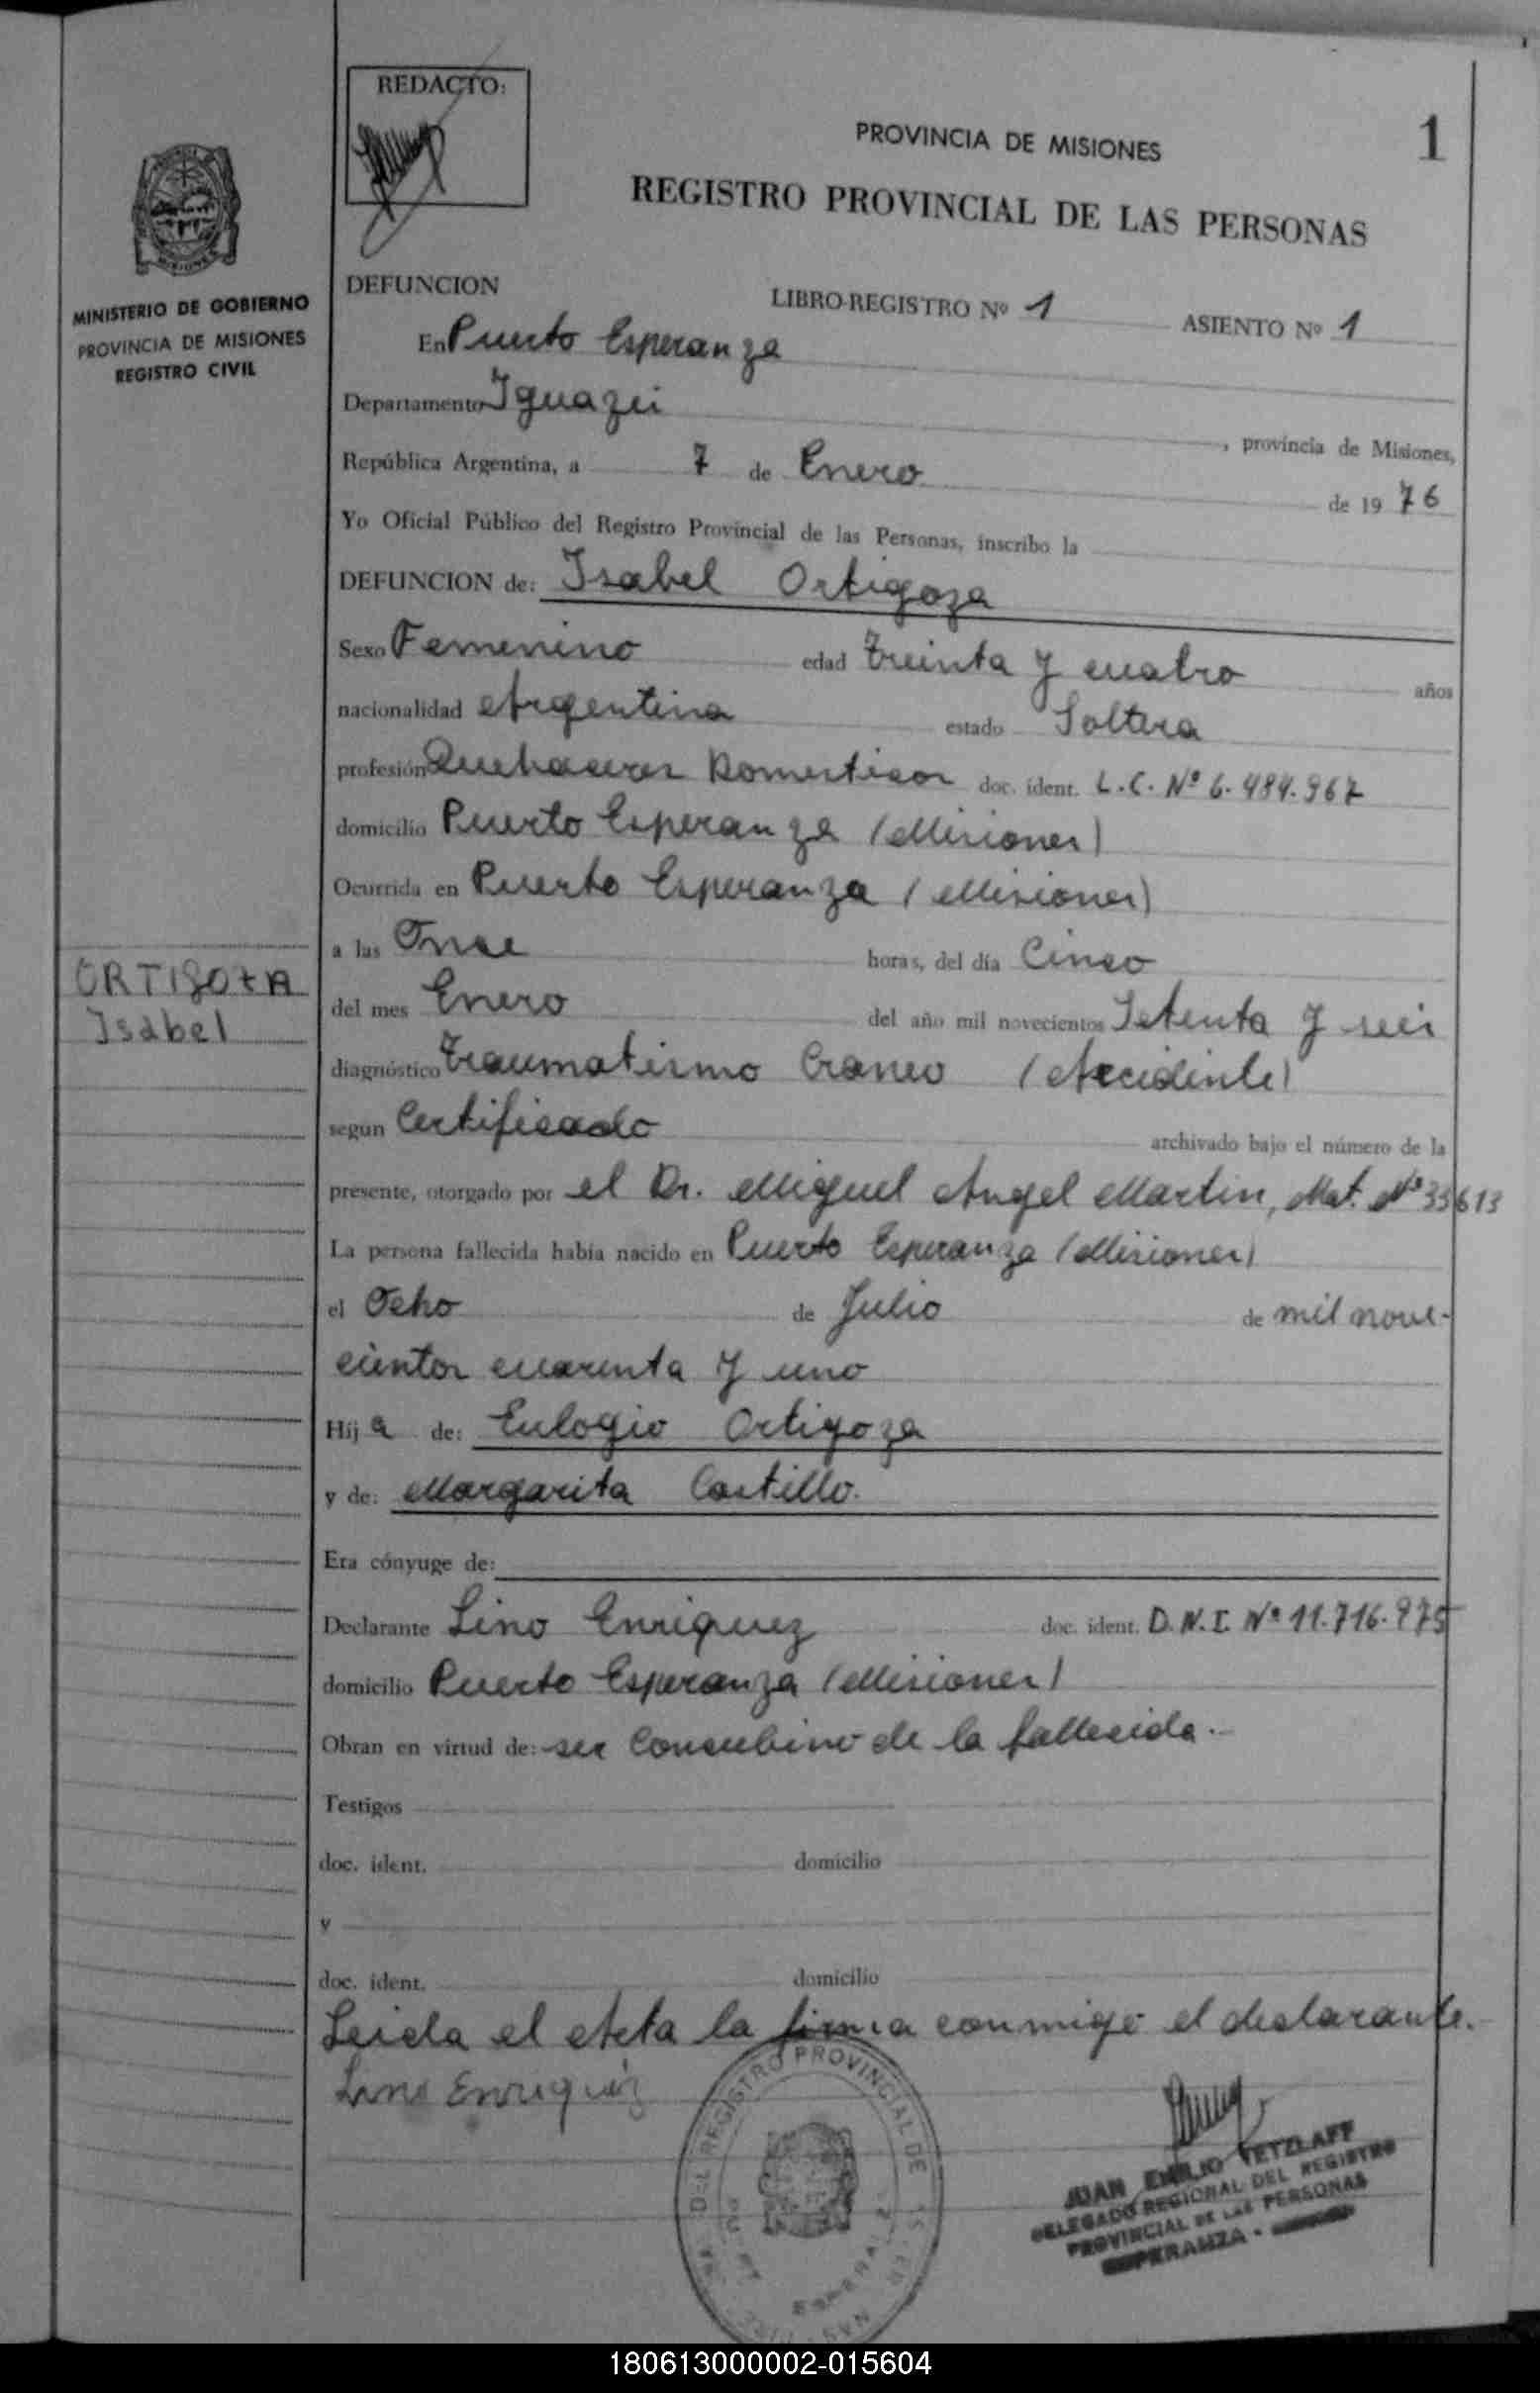 REDACTO:
PROVINCIA DE MISIONES
1
REGISTRO PROVINCIAL DE LAS PERSONAS
MISIONES
MINISTERIO DE GOBIERNO
PROVINCIA DE MISIONES
REGISTRO CIVIL
DEFUNCION LIBRO-REGISTRO Nº 1 ASIENTO Nº 1
En Puerto Esperanza
Departamento Iguazú, provincia de Misiones,
República Argentina, a 7 de Enero de 1976
Yo Oficial Público del Registro Provincial de las Personas, inscribo la
DEFUNCION de: Isabel Ortigoza
Sexo Femenino edad treinta y cuatro años
nacionalidad Argentina estado Soltera
profesión Quehaceres Domesticos doc. ident. L.C. Nº 6.484.967
domicilio Puerto Esperanza (Misiones)
Ocurrida en Puerto Esperanza (Misiones)
a las Once horas, del día Cinco
ORTIGOZA
Isabel
del mes Enero del año mil novecientos Setenta y seis
diagnóstico traumatismo Craneo (Accidente)
segun Certificado archivado bajo el número de la
presente, otorgado por el Dr. Miguel Angel Martin, Mat. Nº 33613
La persona fallecida había nacido en Puerto Esperanza (Misiones)
el Ocho de Julio de mil nove-
cientos cuarenta y uno
Hija de: Eulogio Ortigoza
y de: Margarita Castillo.
Era cónyuge de:
Declarante Lino Enriquez doc. ident. D.N.I. Nº 11.716.975
domicilio Puerto Esperanza (Misiones)
Obran en virtud de: ser Concubino de la fallecida.-
Testigos
doc. ident. domicilio
y
doc. ident. domicilio
Leida el Acta la firma conmigo el declarante.
Lino Enriquez
DEL REGISTRO PROVINCIAL DE
JUAN EMILIO TETZLAFF
DELEGADO REGIONAL DEL REGISTRO
PROVINCIAL DE LAS PERSONAS
ESPERANZA -
180613000002-015604